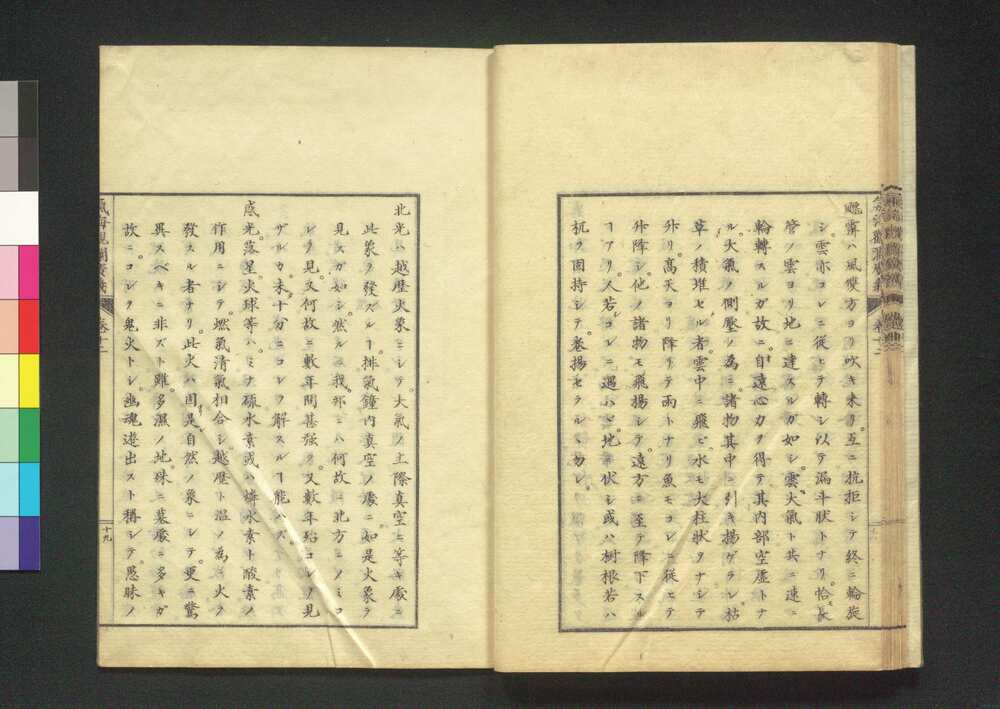 颶霽ハ風雙方ヨリ吹キ來リ互ニ抗拒シテ終ニ輪旋
シ雲亦コレニ從ヒテ轉シ以テ漏斗狀トナリ恰モ長
管ノ雲ヨリ地ニ達スルガ如シ雲大氣ト共ニ速ニ
輪轉スルガ故ニ自遠心力ヲ得テ其内部空虛トナ
ル大氣ノ側壓ノ為ニ諸物其中ニ引キ揚ゲラレ枯
草ノ積堆セル者雲中ニ飛ビ水モ大柱狀ヲナシテ
外リ高天ヨリ降リテ雨トナリ魚モコレニ從ヒテ
外降シ他ノ諸物モ飛揚シテ遠方ニ至テ降下スル
ヿアリ人若コレニ遇ハヾ地ニ伏シ或ハ樹根若ハ
杭ヲ固持シテ卷揚セラルヽ勿レ
氣海觀瀾廣義 卷十二
北光ハ越歷火象ニシテ大氣ノ上際真空ニ等キ處ニ
此象ヲ發スルヿ排氣鐘内真空ノ處ニ如是火象ヲ
見スガ如シ然ルニ我邦ニハ何故ニ北方ニノミコ
レヲ見又何故ニ數年間甚強ク又數年殆コレヲ見
ザルカ未十分ニコレヲ解スルヿ能ハズ
惑光落星火球等ハミナ硫水素或ハ燐水素ト酸素ノ
作用ニシテ燃氣清氣相合シ越歷ト温ノ為ニ火ヲ
發スル者ナリ此火ハ固是自然ノ象ニシテ更ニ驚
異スベキニ非ズト雖多濕ノ地殊ニ墓處ニ多キガ
故ニコレヲ鬼火トシ幽魂遊出スト稱シテ愚昧ノ
氣海觀瀾廣義 卷十二
十九